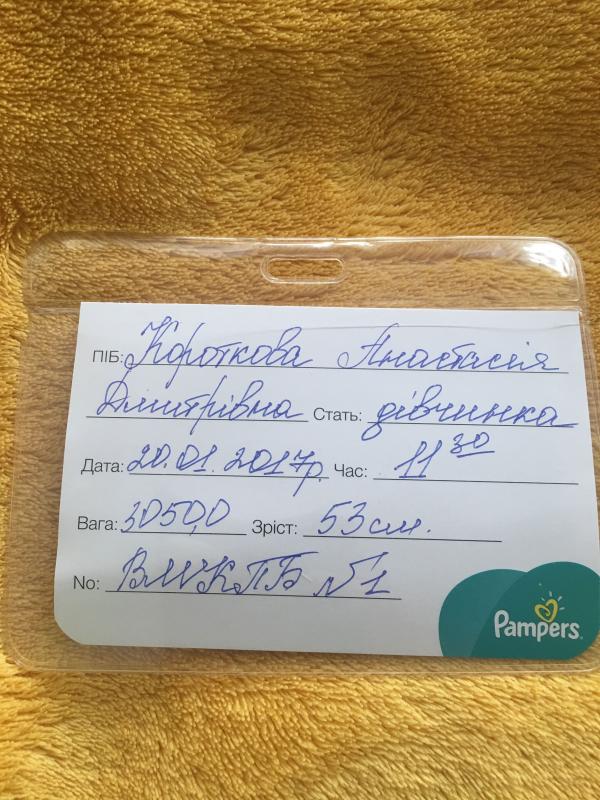 ПІБ: Короткова Анастасія
Дмитрівна Стать: дівчинка
Дата: 20.01.2017р. Час: 11 30
Вага: 3050,0 Зріст: 53 см.
No: ВМКПБ №1
Pampers